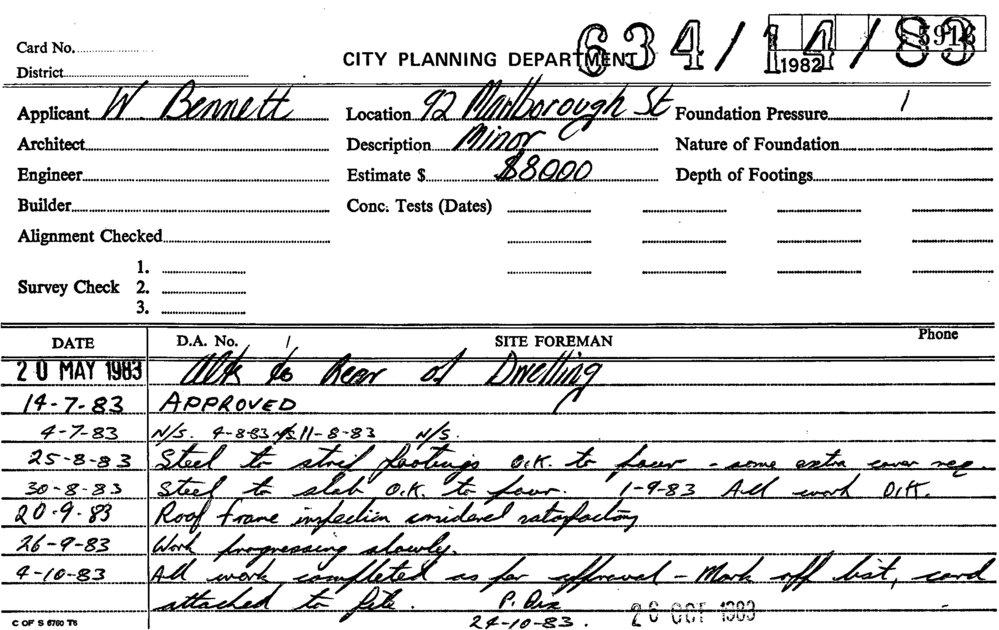 634/14/83
5916
Card No.
CITY PLANNING DEPARTMENT
1982
District
Applicant W. Bennett Location 92 Marlborough St Foundation Pressure /
Architect Description Minor Nature of Foundation
Engineer Estimate $ $8000 Depth of Footings
Builder Conc. Tests (Dates)
Alignment Checked
1.
Survey Check 2.
3.
DATE D.A. No. / SITE FOREMAN Phone
20 MAY 1983 Alts to Rear of Dwelling
14-7-83 APPROVED
4-7-83 N/S. 4-8-83 N/S 11-8-83 N/S.
25-8-83 Steel to strip footings O.K. to pour - some extra cover req.
30-8-83 Steel to slab O.K. to pour. 1-9-83 All work O.K.
20-9-83 Roof frame inspection considered satisfactory
26-9-83 Work progressing slowly.
4-10-83 All work completed as per approval - Mark off list, card
attached to file. P.
24-10-83. 26 OCT 1983
C OF S 6760 T6